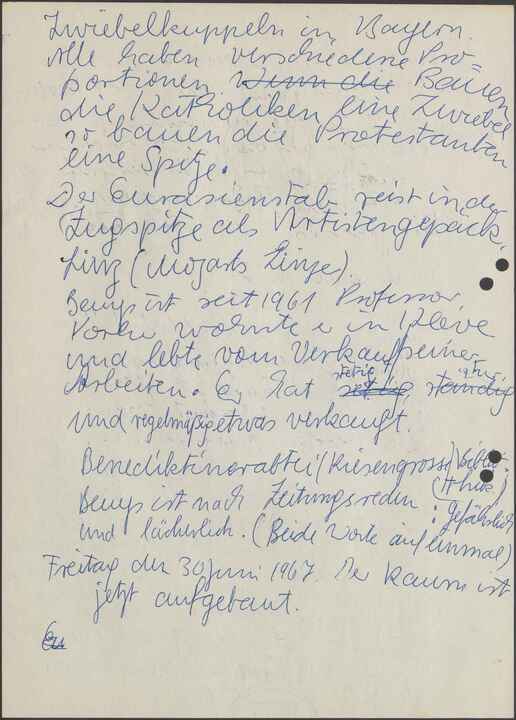 Zwiebelkuppeln in Bayern.
Alle haben verschiedene Pro=
portionen. Wenn die Bauen
die Katholiken eine Zwiebel
so bauen die Protestanten
eine Spitze.
Der Eurasienstab reist in der
Zugspitze als Artistengepäck.
Linz (Mozarts Linze).
Beuys ist seit 1961 Professor.
Vorher wohnte er in Kleve
und lebte vom Verkauf seiner
Arbeiten. Er hat stetig ständig
und regelmäßig etwas verkauft.
Benediktinerabtei (Riesengrosse) Biblio
(thek)
Beuys ist nach Zeitungsreden: gefährlich
und lächerlich. (Beide Worte auf einmal)
Freitag den 30 Juni 1967. Der Raum ist
jetzt aufgebaut.